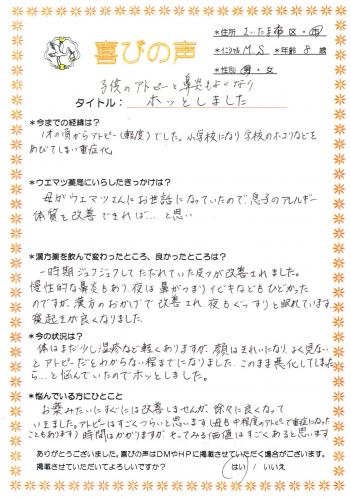 喜びの声
*住所 さいたま市 区・町
*イニシャル M.S *年齢 8 歳
*性別 男・女
子供のアトピーと鼻炎もよくなり
タイトル: ホッとしました
*今までの経緯は?
1才の頃からアトピー(軽度)でした。小学校になり学校のホコリなどを
あびてしまい重症化。
*ウエマツ薬局にいらしたきっかけは?
母がウエマツさんにお世話になっていたので、息子のアレルギー
体質を改善できれば…と思い
*漢方薬を飲んで変わったところ、良かったところは?
一時期ジュクジュクしてただれていた皮フが改善されました。
慢性的な鼻炎もあり、夜は鼻がつまりイビキなどもひどかった
のですが、漢方のおかげで改善され、夜もぐっすりと眠れています。
寝起きが良くなりました。
*今の状況は?
体はまだ少し湿疹など軽くありますが、顔はきれいになり、よく見ない
とアトピーだとわからない程までになりました。このまま悪化してしまった
ら…と悩んでいたのでホッとしました。
*悩んでいる方にひとこと
お薬みたいにすぐには改善しませんが、徐々に良くなって
いきました。アトピーはすごくつらいと思います(母も中程度のアトピーで重症になった
こともあります)時間はかかりますが、やってみる価値はすごくあると思います
ありがとうございました。喜びの声はDMやHPに掲載させていただく場合がございます。
掲載させていただいてよろしいですか? (はい / いいえ